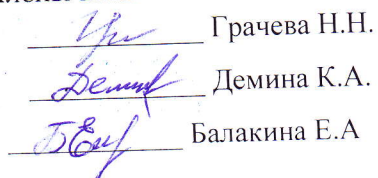 Грачева Н.Н.
Демина К.А.
Балакина Е.А